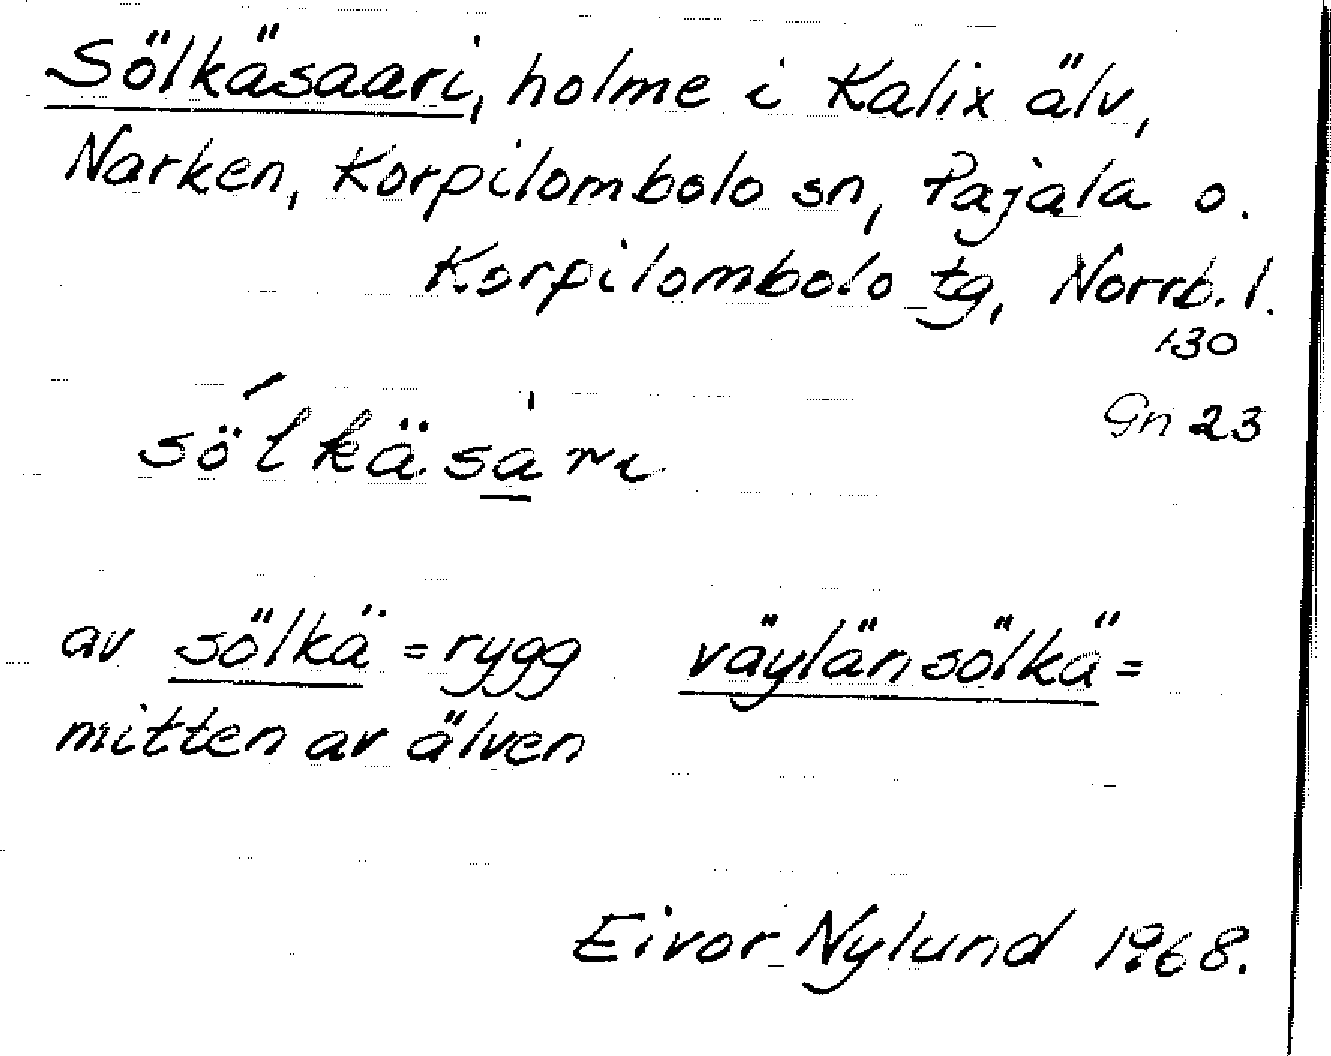 Sölkäsaari, holme i Kalix älv,
Narken, Korpilombolo sn, Pajala o.
Korpilombolo tg, Norrb. l.
130
Gn 23
sölkäsa̲ri
av sölkä = rygg väylänsölkä =
mitten av älven
Eivor Nylund 1968.